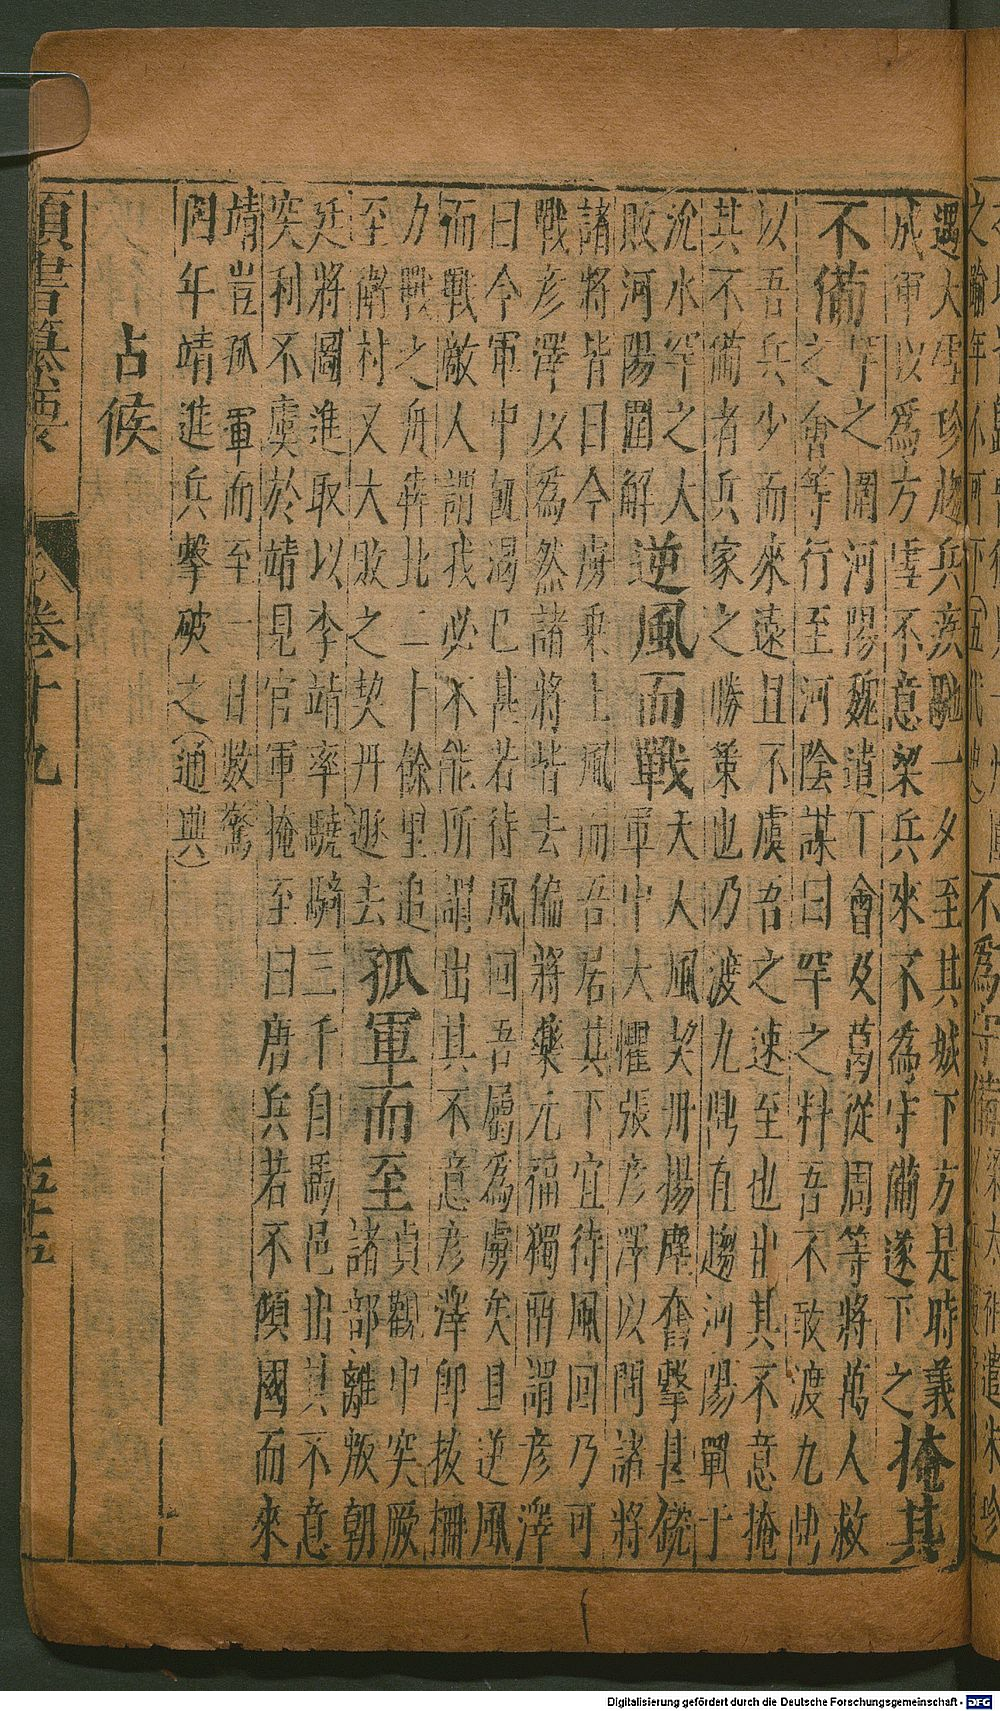 之踰年不可下(五代史)不爲守備梁太祖遣朱珍
遇大雪珍趨兵疾馳一夕至其城下方是時義
成軍以爲方雪不意梁兵來不爲守備遂下之掩其
不備罕之圍河陽魏遣丁會及葛從周等將萬人救
之會等行至河陰謀曰罕之料吾不敢渡九鼎
以吾兵少而來遠且不虞吾之速至也出其不意掩
其不備者兵家之勝策也乃渡九鼎直趨河陽戰于
沇水罕之大
敗河陽圍解
逆風而戰
天大風契丹揚塵奮擊甚銳
軍中大懼張彥澤以問諸將
諸將皆曰今虜乘上風而吾居其下宜待風回乃可
戰彥澤以爲然諸將皆去偏將藥元福獨留謂彥澤
曰今軍中飢渴已甚若待風回吾屬爲虜矣且逆風
而戰敵人謂我必不能所謂出其不意彥澤卽拔柵
力戰之舟犇北二十餘里追
至衛村又大敗之契丹遯去
孤軍而至
貞觀中突厥
諸部離叛朝
廷將圖進取以李靖率驍騎三千自馬邑出其不意
突利不虞於靖見官軍掩至曰唐兵若不傾國而來
靖豈孤軍而至一日數驚
同年靖進兵擊破之(通典)
占候
類書纂要 卷十九 五十五
Digitalisierung gefördert durch die Deutsche Forschungsgemeinschaft - DFG